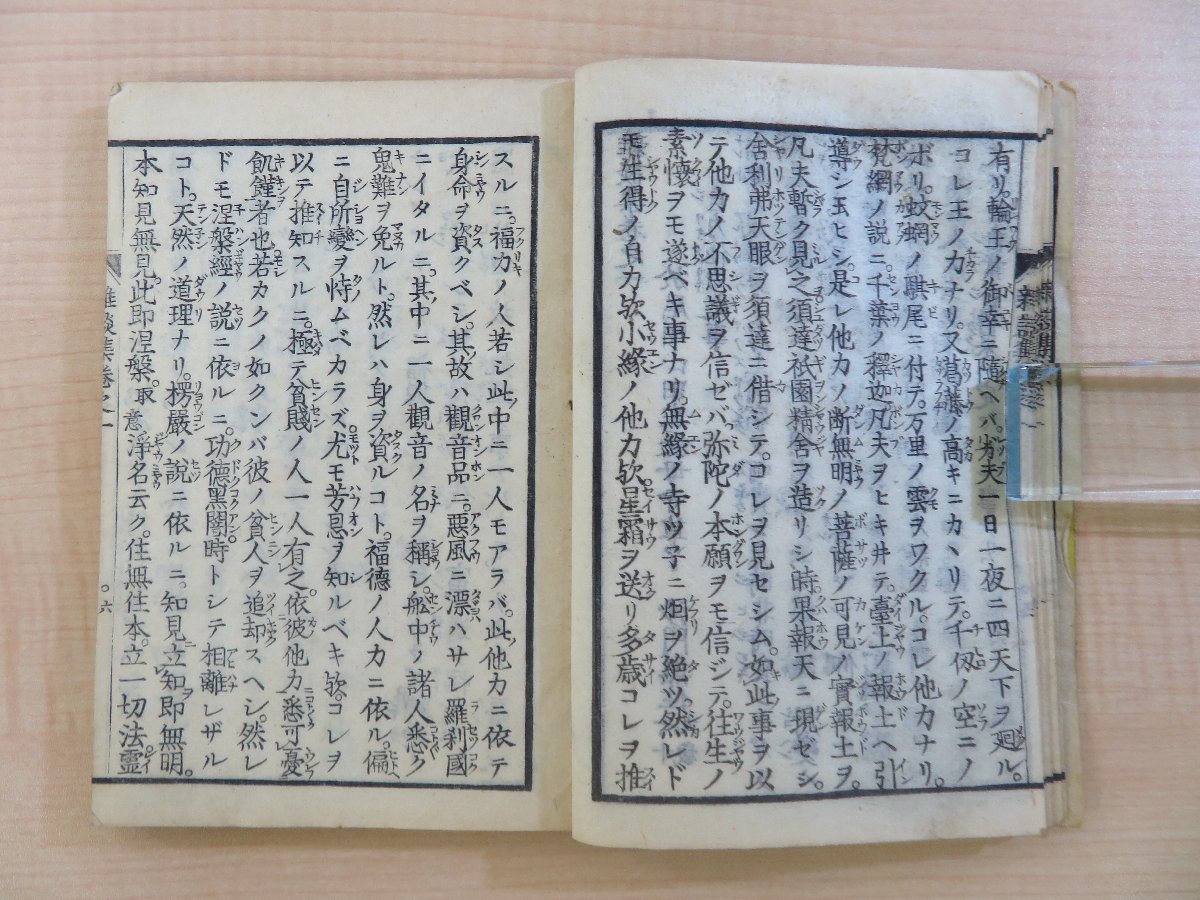 有リ。輪王ノ御幸ニ随ヘバ。劣夫一日一夜ニ四天下ヲ廻ル。
コレ王ノカナリ。又葛藤ノ高キニカヽリテ。千仭ノ空ニノ
ボリ。蚊虻ノ騏尾ニ付テ。万里ノ雲ヲワクル。コレ他カナリ。
梵網ノ説ニ千葉ノ釋迦凡夫ヲヒキ井テ。臺上ノ報土ヘ引
導シ玉ヒシ。是レ他カノ断無明ノ菩薩ノ可見ノ實報土ヲ。
凡夫暫ク見之須達祇園精舎ヲ造リシ時。果報天ニ現ゼシ。
舎利弗天眼ヲ須達ニ借シテ。コレヲ見セシム。如此事ヲ以
テ他カノ不思議ヲ信ゼバ。弥陀ノ本願ヲモ信ジテ。往生ノ
素懐ヲモ遂ベキ事ナリ。無縁ノ寺ツ子ニ烟ヲ絶ツ。然レド
モ生得ノ自力欤小縁ノ他力欤星霜ヲ送リ多歳コレヲ推
スルニ。福力ノ人若シ此ノ中ニ一人モアラバ。此ノ他カニ依テ
身命ヲ資クベシ。其故ハ觀音品ニ。惡風ニ漂ハサレ羅刹國
ニイタルニ。其中ニ一人觀音ノ名ヲ稱シ。舩中ノ諸人悉ク
鬼難ヲ免ルト。然レハ身ヲ資ルコト。福德ノ人力ニ依ル。偏
ニ自所變ヲ恃ムベカラズ。尤モ芳恩ヲ知ルベキ欤。コレヲ
以テ推知スルニ。極テ貧賤ノ人一人有之。依彼他力悉可憂
飢饉者也若カクノ如クンバ彼ノ貧人ヲ追却スヘシ。然レ
ドモ涅槃經ノ説ニ依ルニ。功德黑闇時トシテ相離レザル
コト。天然ノ道理ナリ。楞嚴ノ説ニ依ルニ。知見立知即無明。
本知見無見。此即涅槃。取意浄名云ク。住無住本。立一切法霊
雜談集巻之一
〇六